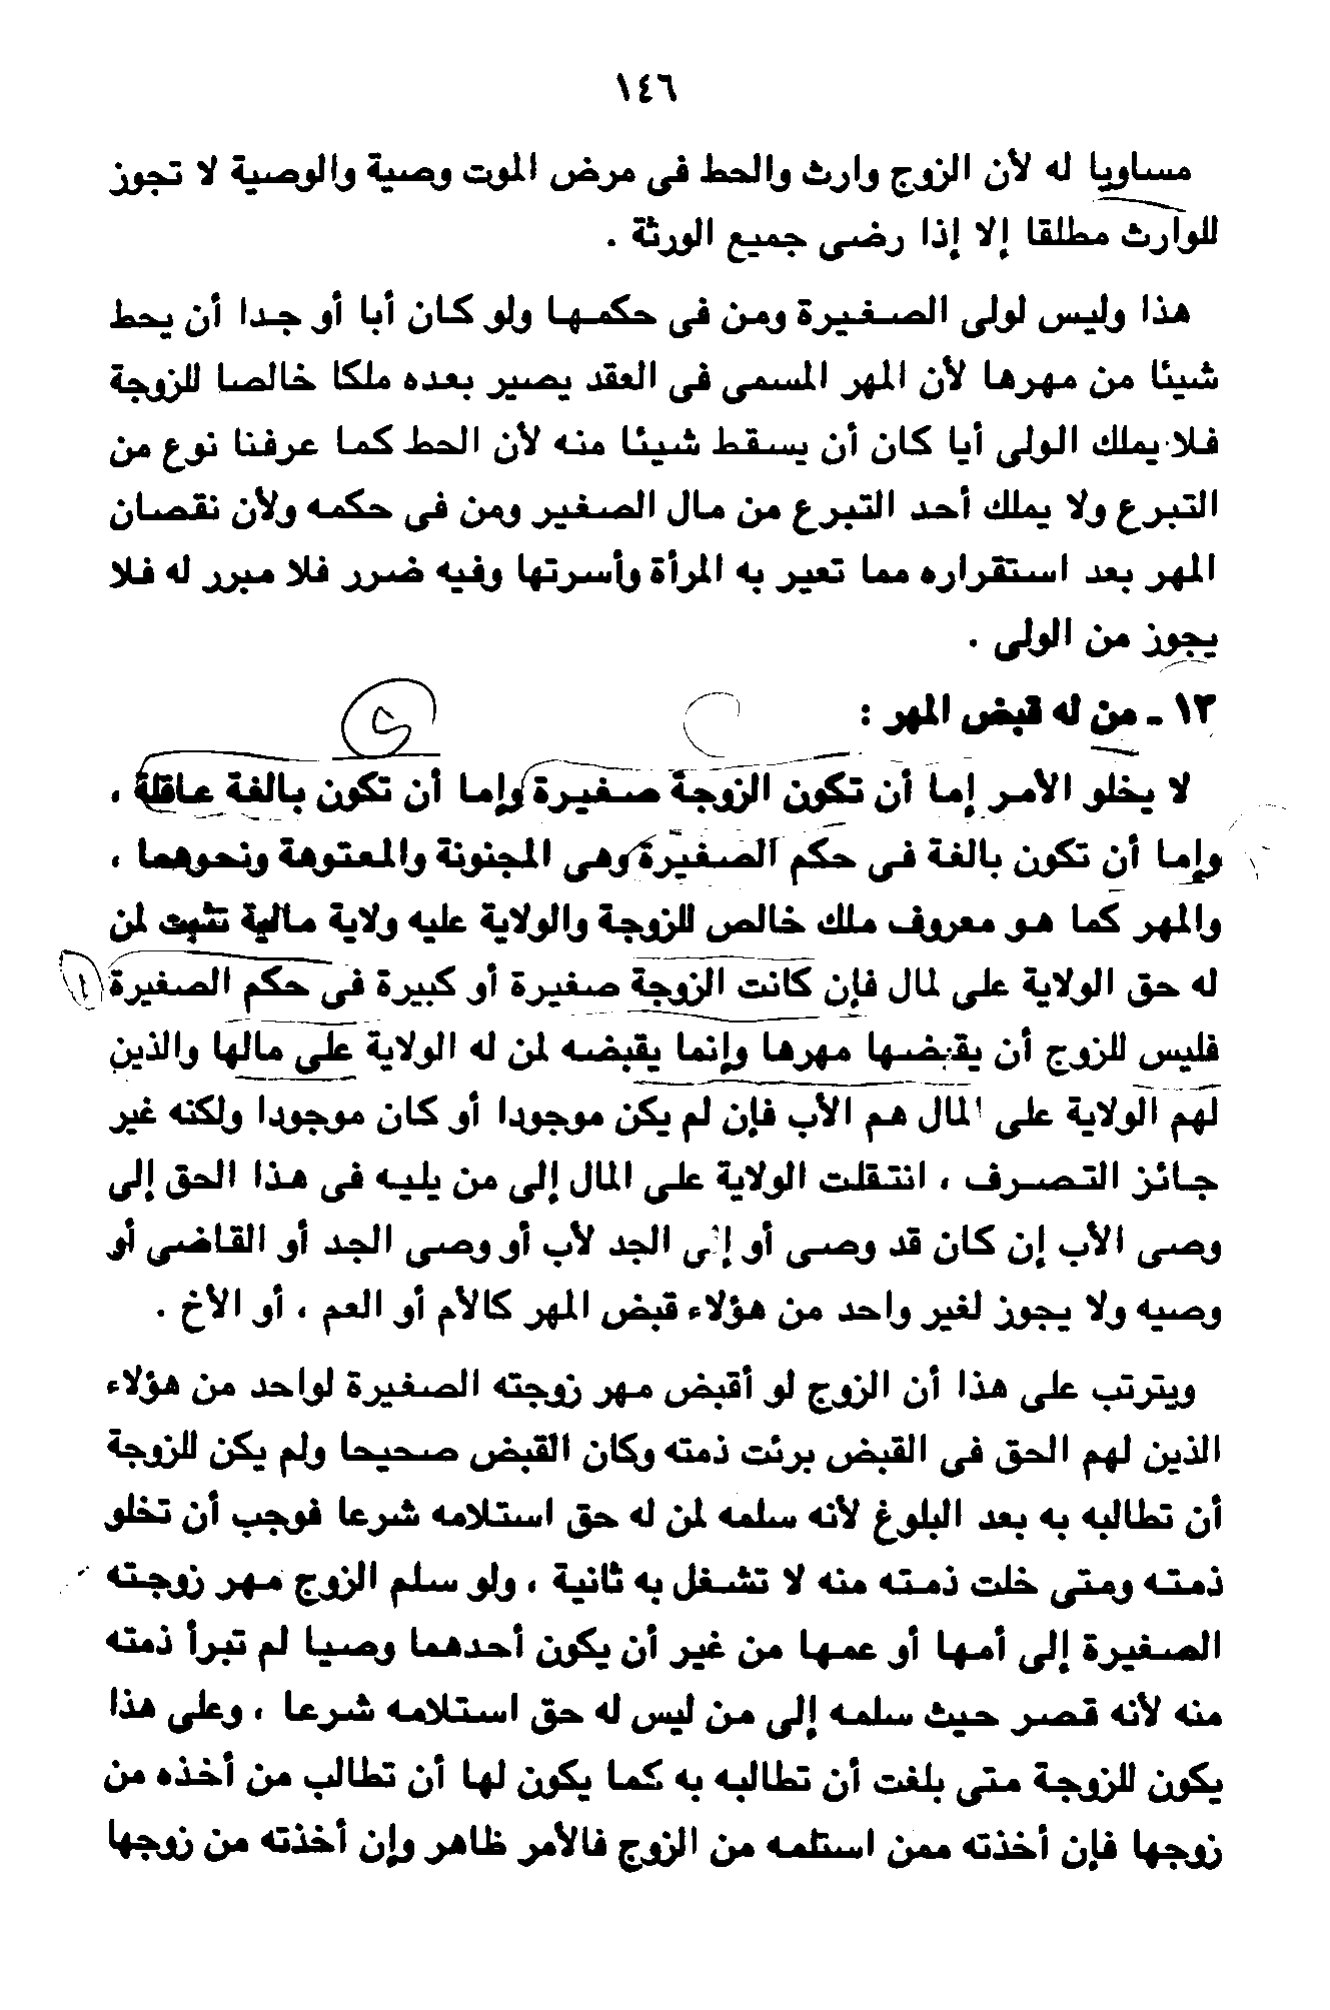 ١٤٦
مساويا له لأن الزوج وارث والحط فى مرض الموت وصية والوصية لا تجوز
للوارث مطلقا إلا إذا رضى جميع الورثة .
هذا وليس لولى الصغيرة ومن فى حكمها ولو كان أبا أو جدا أن يحط
شيئا من مهرها لأن المهر المسمى فى العقد يصير بعده ملكا خالصا للزوجة
فلا يملك الولى أيا كان أن يسقط شيئا منه لأن الحط كما عرفنا نوع من
التبرع ولا يملك أحد التبرع من مال الصغير ومن فى حكمه ولأن نقصان
المهر بعد استقراره مما تعير به المرأة وأسرتها وفيه ضرر فلا مبرر له فلا
يجوز من الولى .
١٣ - من له قبض المهر :
لا يخلو الأمر إما أن تكون الزوجة صغيرة وإما أن تكون بالغة عاقلة ،
وإما أن تكون بالغة فى حكم الصغيرة وهى المجنونة والمعتوهة ونحوهما ،
والمهر كما هو معروف ملك خالص للزوجة والولاية عليه ولاية مالية تثبت لمن
له حق الولاية على لمال فإن كانت الزوجة صغيرة أو كبيرة فى حكم الصغيرة
فليس للزوج أن يقبضها مهرها وإنما يقبضه لمن له الولاية على مالها والذين
لهم الولاية على المال هم الأب فإن لم يكن موجودا أو كان موجودا ولكنه غير
جائز التصرف ، انتقلت الولاية على المال إلى من يليه فى هذا الحق إلى
وصى الأب إن كان قد وصى أو إلى الجد لأب أو وصى الجد أو القاضى أو
وصيه ولا يجوز لغير واحد من هؤلاء قبض المهر كالأم أو العم ، أو الأخ .
ويترتب على هذا أن الزوج لو أقبض مهر زوجته الصغيرة لواحد من هؤلاء
الذين لهم الحق فى القبض برئت ذمته وكان القبض صحيحا ولم يكن للزوجة
أن تطالبه به بعد البلوغ لأنه سلمه لمن له حق استلامه شرعا فوجب أن تخلو
ذمته ومتى خلت ذمته منه لا تشغل به ثانية ، ولو سلم الزوج مهر زوجته
الصغيرة إلى أمها أو عمها من غير أن يكون أحدهما وصيا لم تبرأ ذمته
منه لأنه قصر حيث سلمه إلى من ليس له حق استلامه شرعا ، وعلى هذا
يكون للزوجة متى بلغت أن تطالبه به كما يكون لها أن تطالب من أخذه من
زوجها فإن أخذته ممن استلمه من الزوج فالأمر ظاهر وإن أخذته من زوجها